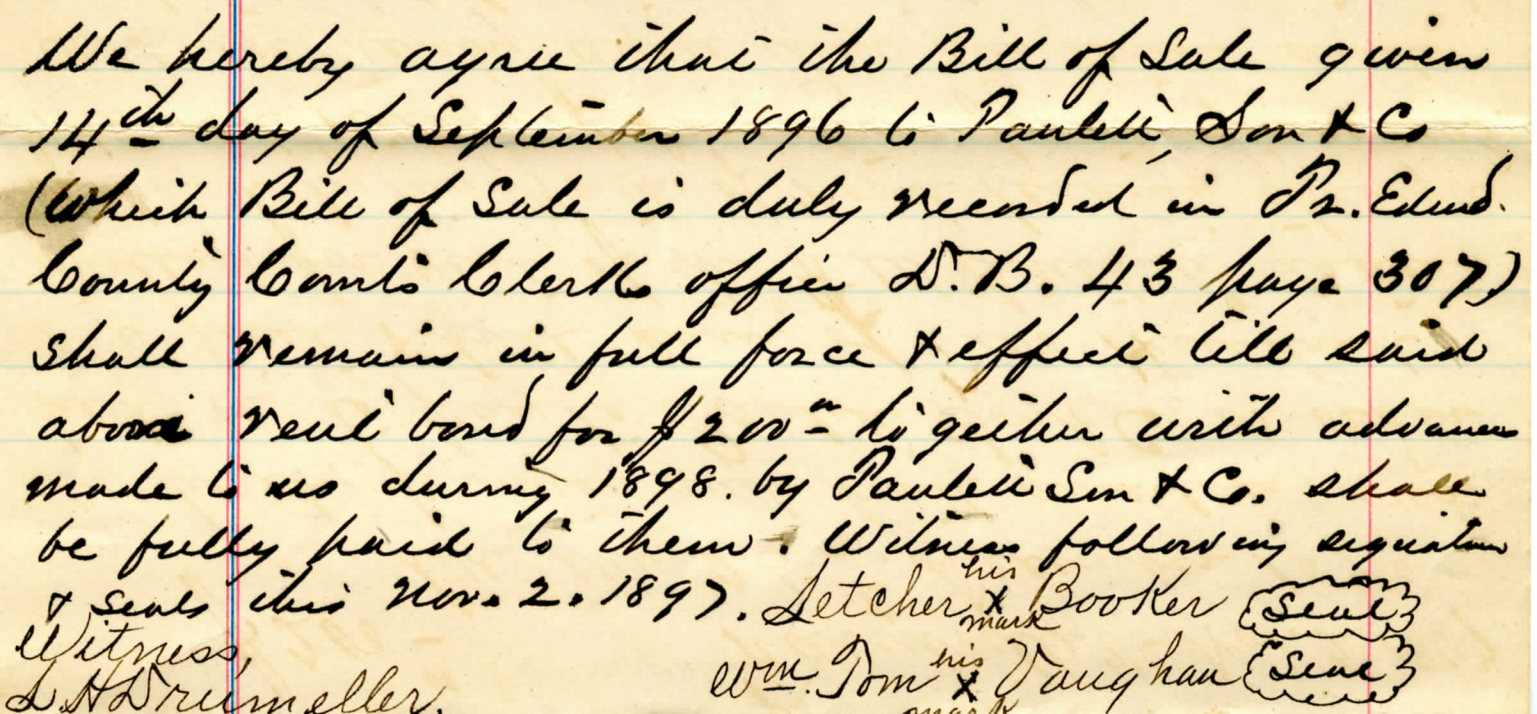 We hereby agree that the Bill of Sale given
14th day of September 1896 to Paulett, Son & Co
(which Bill of Sale is duly recorded in Pr. Edwd.
County Courts Clerks office D.B. 43 page 307)
shall remain in full force & effect till said
above rent bond for $200 together with advances
made to us during 1898. by Paulett Son & Co. shall
be fully paid to them. Witness following signatures
& seals this Nov. 2. 1897. Letcher his X mark Booker Seal
Witness,
Wm. Tom his X mark Vaughan Seal
Drumeller.